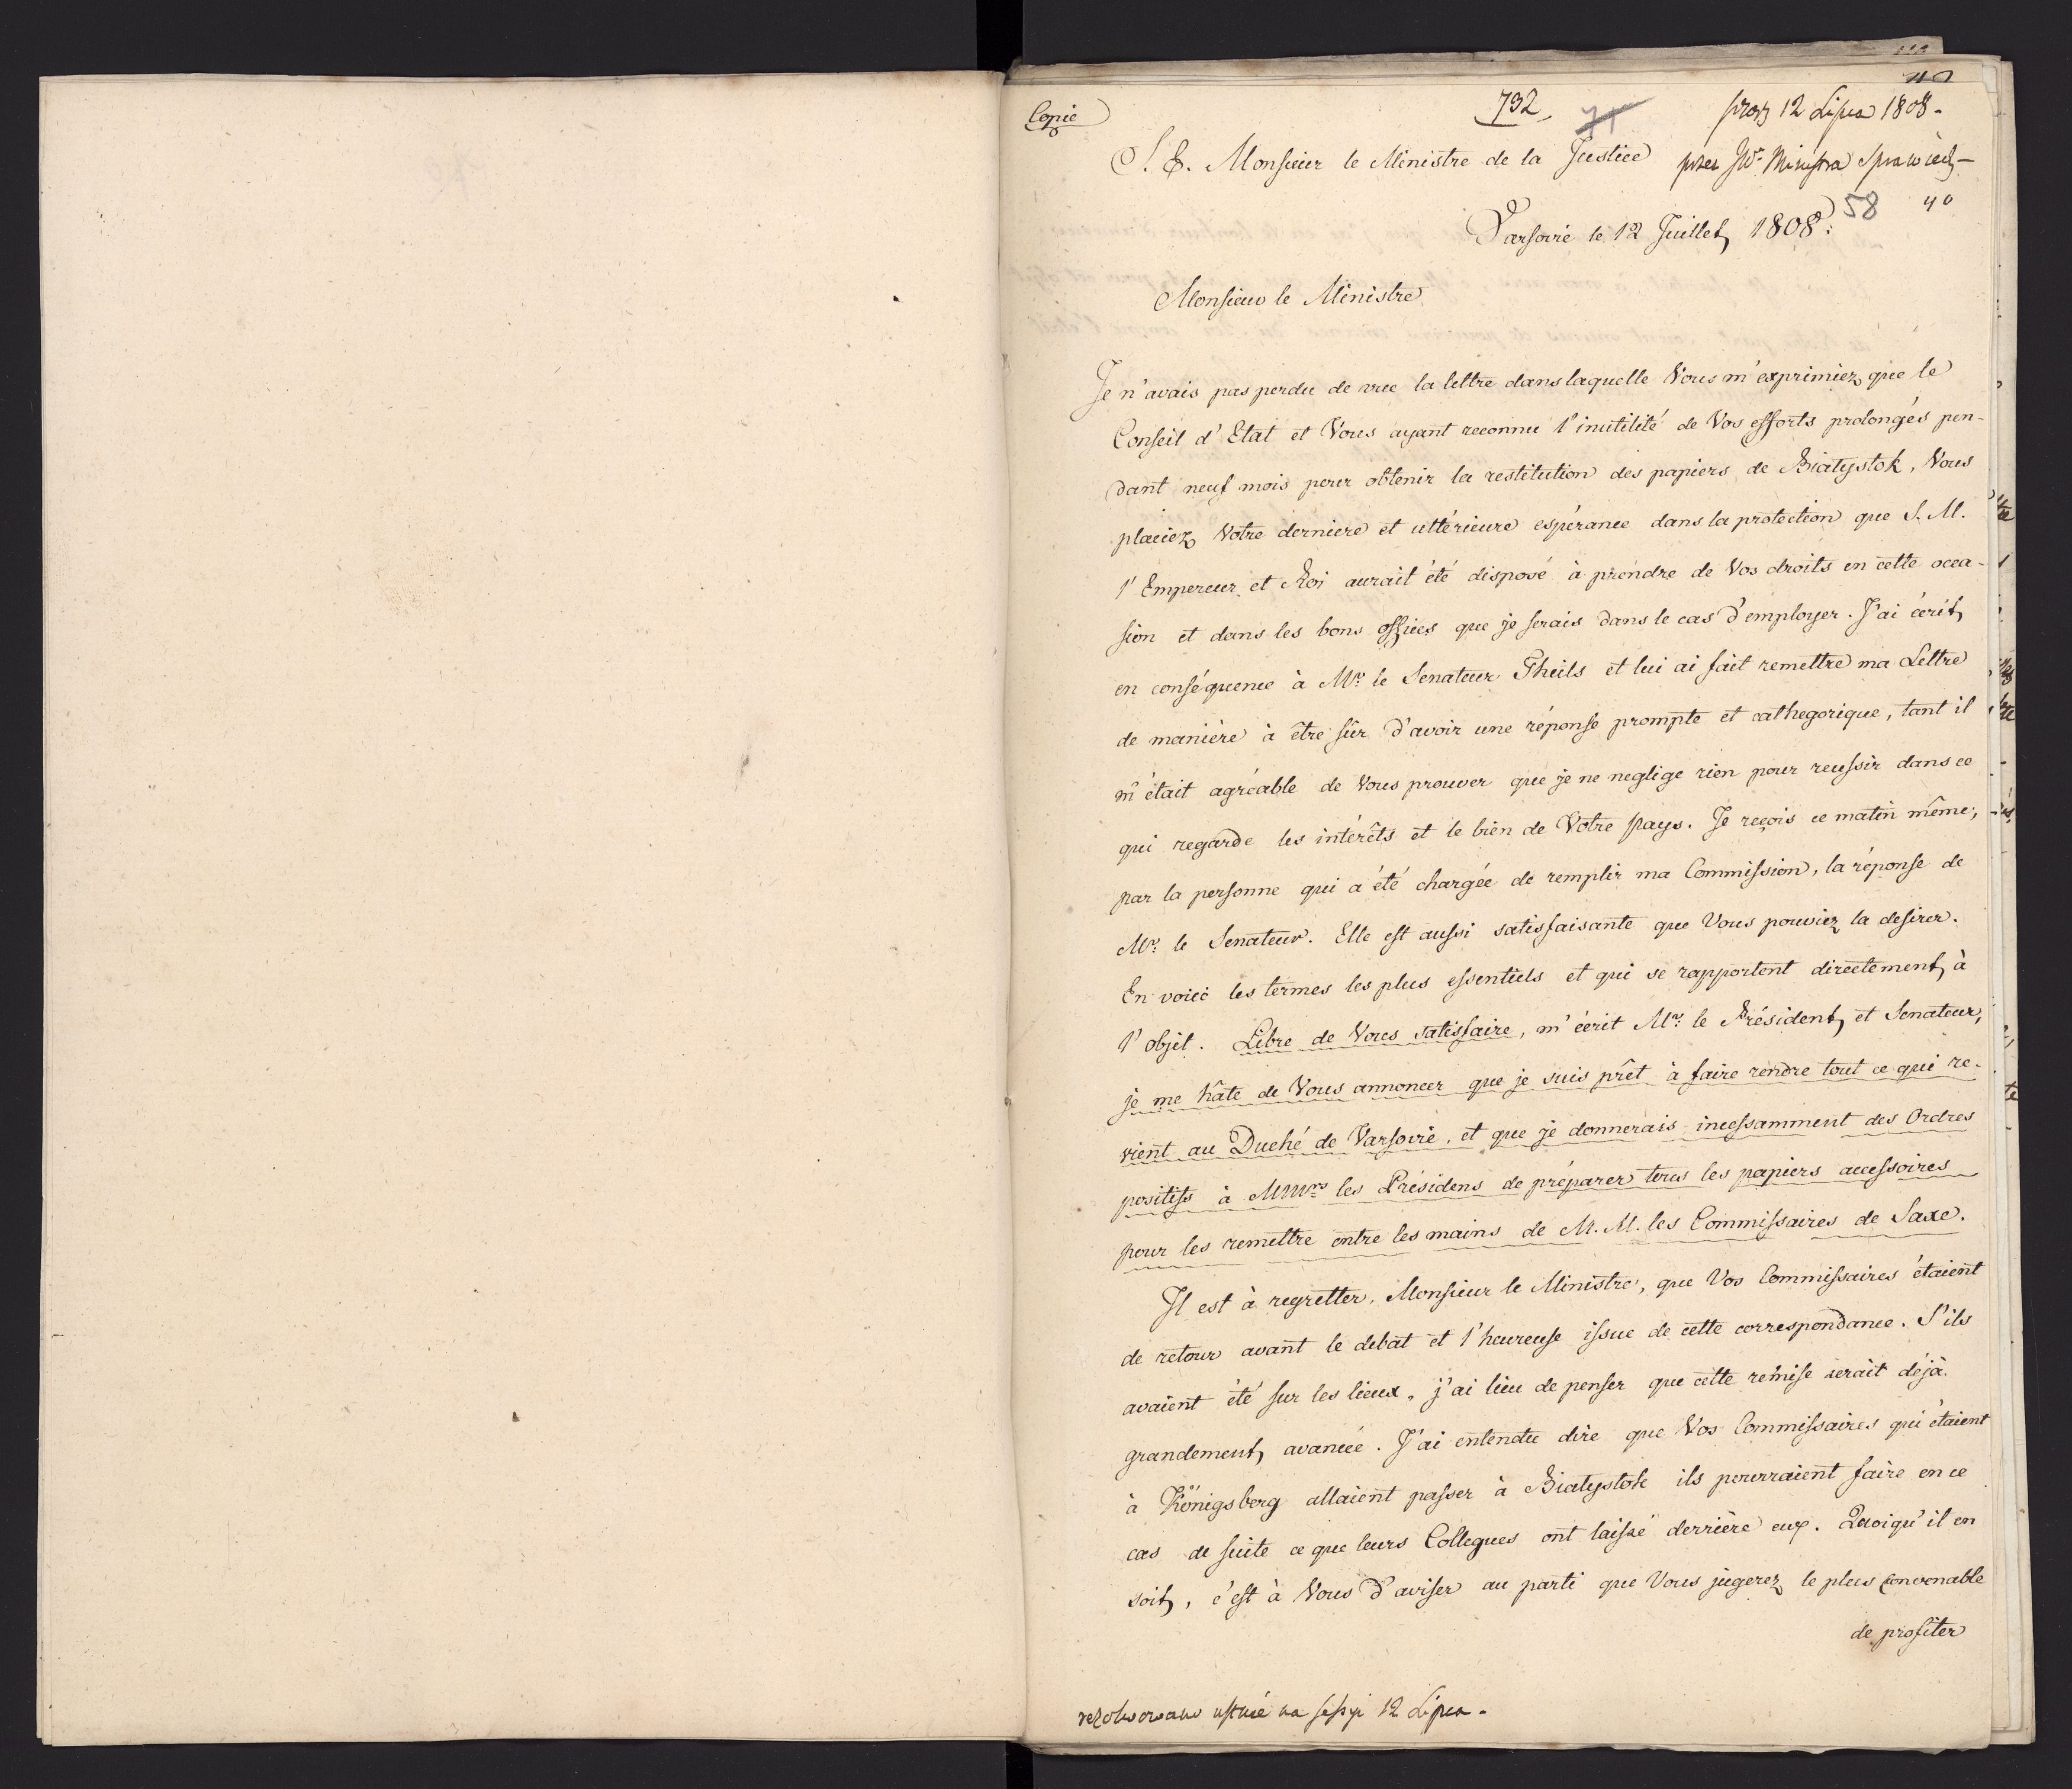 Copie
732
71
40
proz 12 Lipca 1808.
S. E. Monsieur le Ministre de la Justice
przez JW. Ministra Sprawied
58
40
Varsovie le 12 Juillet 1808.
Monsieur le Ministre
Je n'avais pas perdu de vue la lettre dans laquelle Vous m'exprimiez que le
Conseil d'Etat et Vous ayant reconnu l'inutilité de Vos efforts prolongés pen-
dant neuf mois pour obtenir la restitution des papiers de Białystok, Vous
placiez Votre derniere et ultérieure espérance dans la protection que S. M.
l'Empereur et Roi aurait été disposé à prendre de Vos droits en cette occa-
sion et dans les bons offices que je serais dans le cas d'employer. J'ai écrit
en conséquence à Mr. le Senateur Theils et lui ai fait remettre ma Lettre
de manière à être sûr d'avoir une réponse prompte et cathegorique, tant il
m'était agréable de Vous prouver que je ne neglige rien pour reussir dans ce
qui regarde les intérêts et le bien de Votre pays. Je reçois ce matin même,
par la personne qui a été chargée de remplir ma Commission, la réponse de
Mr. le Senateur. Elle est aussi satisfaisante que Vous pouviez la desirer.
En voici les termes les plus essentiels et qui se rapportent directement à
l'objet. Libre de Vous satisfaire, m'écrit Mr. le Président et Senateur,
je me hâte de Vous annoncer que je suis prêt à faire rendre tout ce qui re-
vient au Duché de Varsovie, et que je donnerais incessamment des Ordres
positifs à MMrs les Présidens de préparer tous les papiers accessoires
pour les remettre entre les mains de M. M. les Commissaires de Saxe.
Il est à regretter, Monsieur le Ministre, que Vos Commissaires étaient
de retour avant le debat et l'heureuse issue de cette correspondance. S'ils
avaient été sur les lieux, j'ai lieu de penser que cette remise serait déjà
grandement avancée. J'ai entendu dire que Vos Commissaires qui étaient
à Königsberg allaient passer à Białystok ils pourraient faire en ce
cas de suite ce que leurs Collegues ont laissé derrière eux. Quoiqu'il en
soit, c'est à Vous d'aviser au parti que Vous jugerez le plus convenable
de profiter
rezolwowano ustnie na sessyi 12 Lipca.